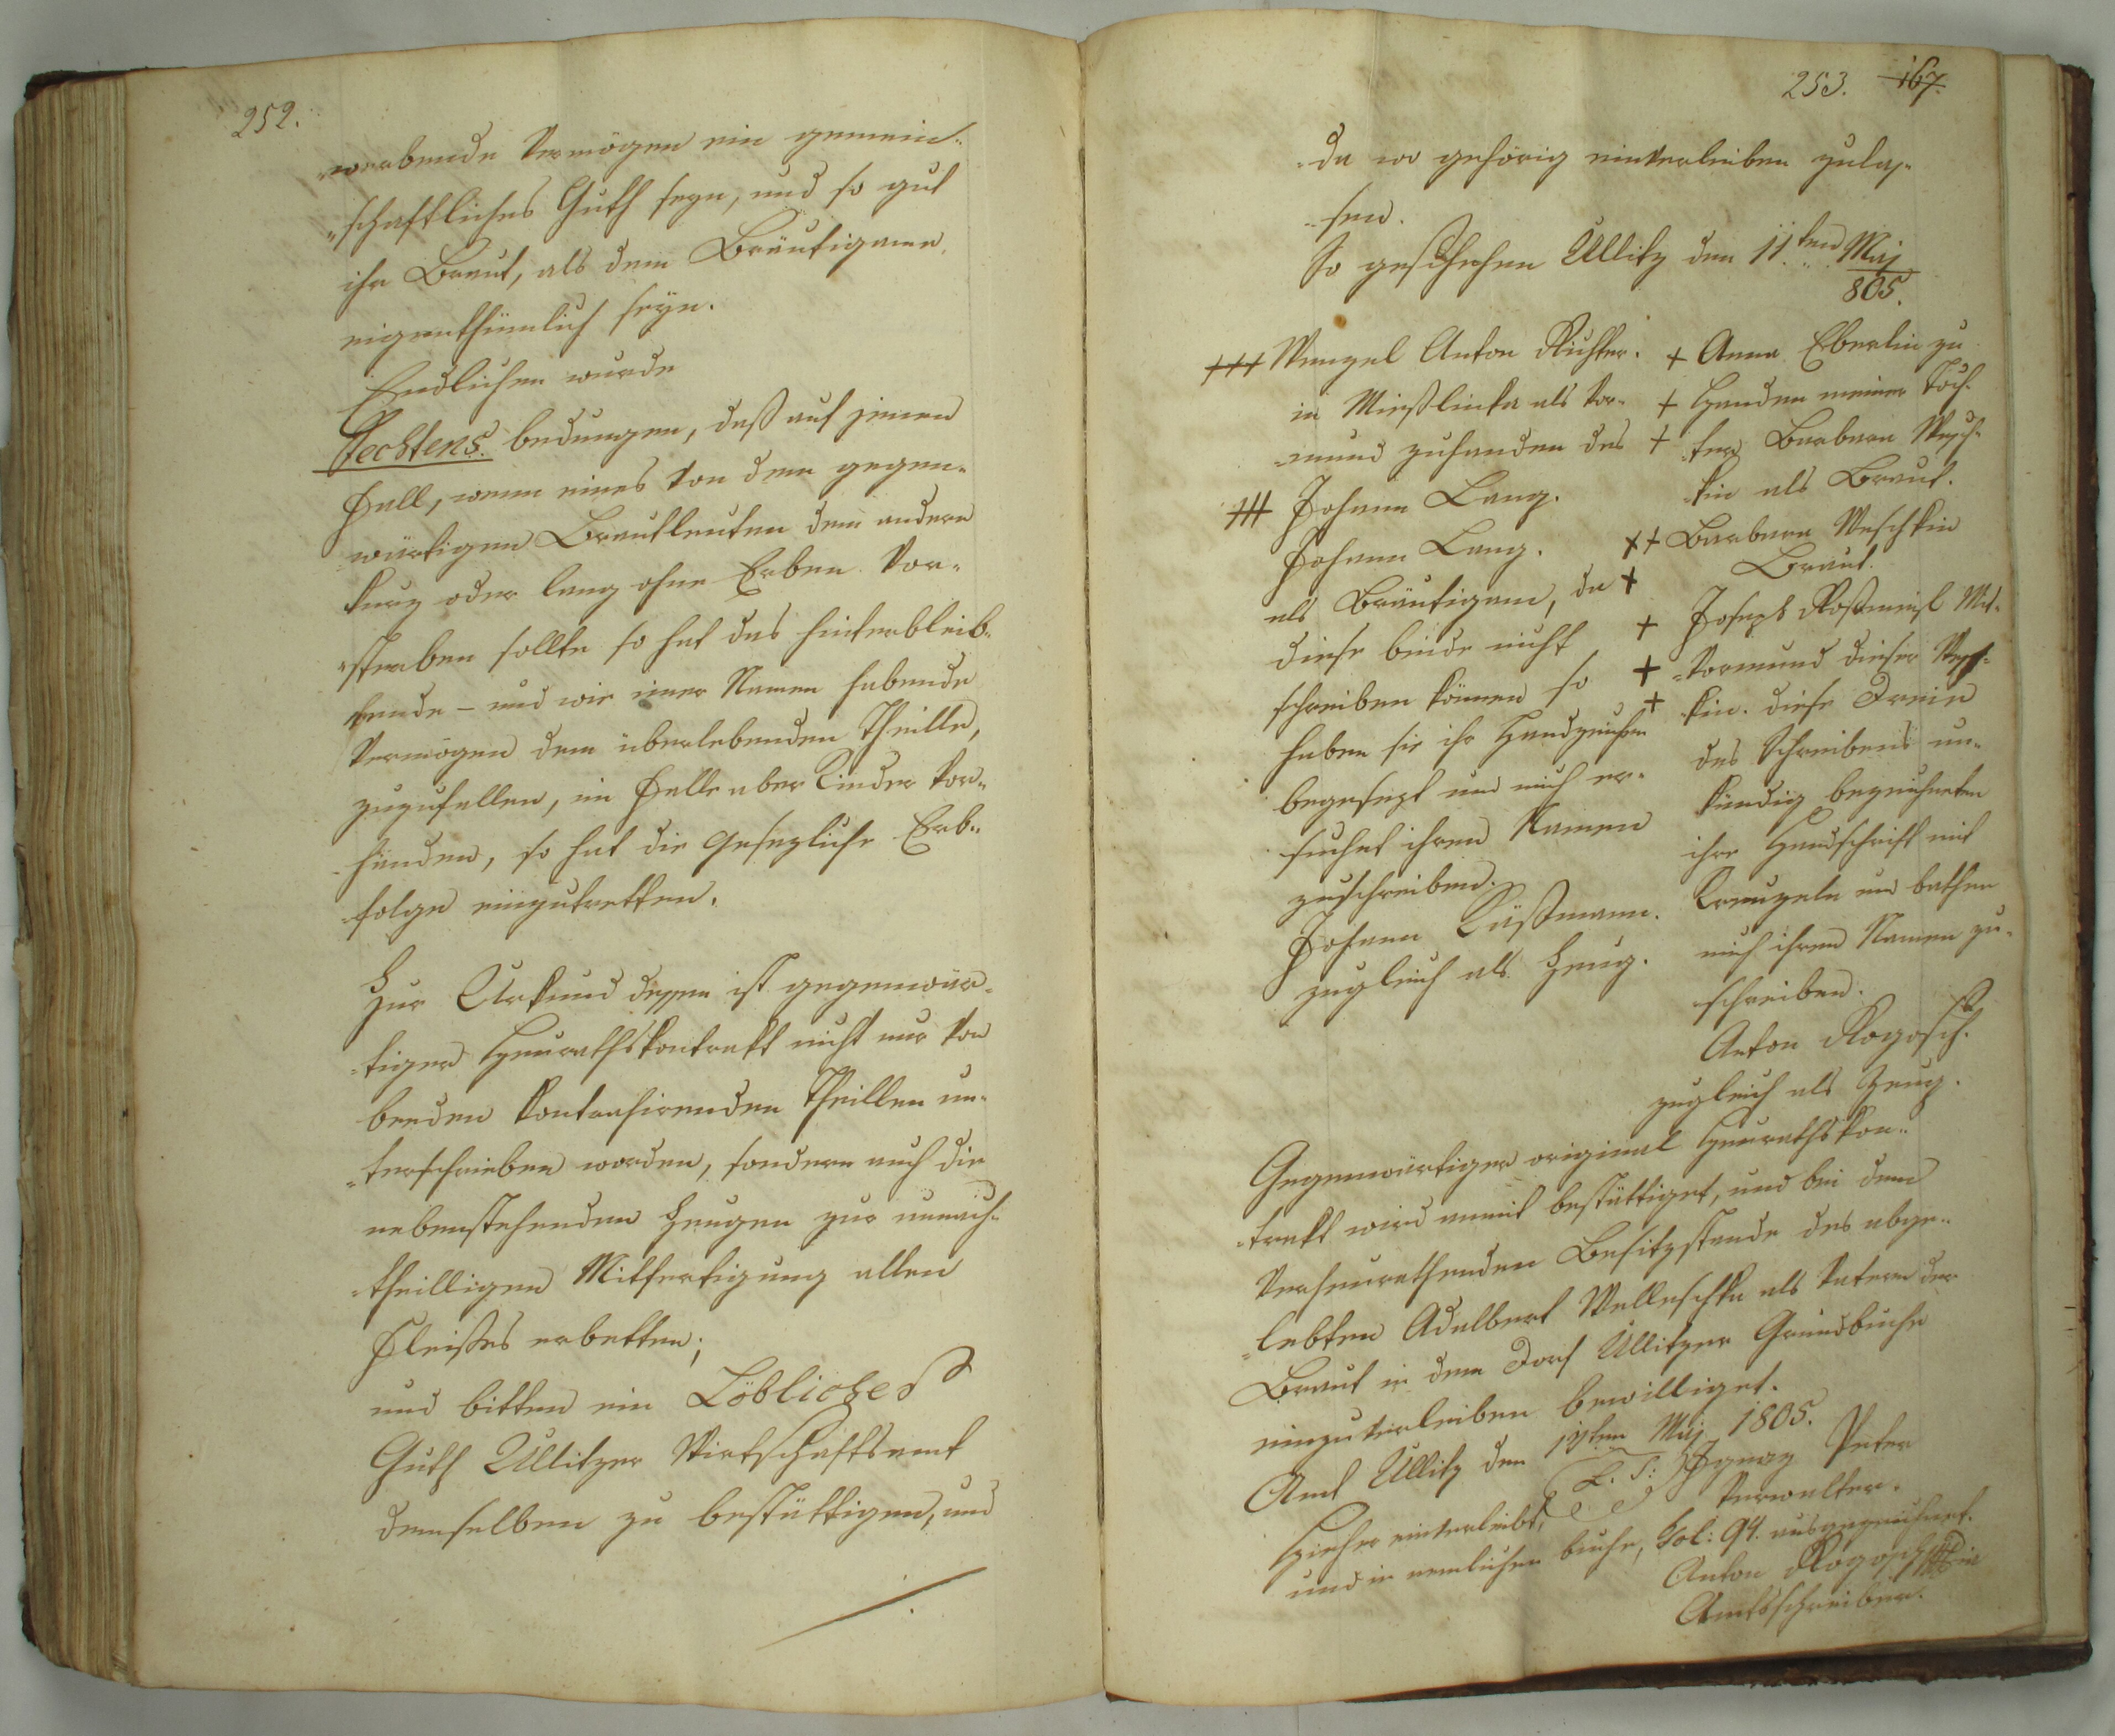 252.
„werbende Vermögen ein gemein„
„schaftliches Guth seyn, und so gut
ihr Braut, als dem Bräutigamen
eigenthümlich seyn.
Endlichen wurde
Sechstens. bedungen, daß auf jenen
Fall, wenn eines von dem gegen„
würtigen Brautleuten dem andern
kurz oder lang ohne Erben vor„
„sterben sollte so hat das hinterbleib„
„ende – und wie imer Namen habende
Vermögen dem überlebenden Theille,
zuzufallen, im Falle aber Kinder vor„
„hunden, so hat die gesezliche Erb„
„folge einzutretten.
Zur Urkund dessen ist gegenwär„
„tiger Heurathskontrakt nicht nur von
beeden kontrahirenden Theillen un„
„terschrieben worden, sondern auch die
nebenstehenden Zeugen zur unnach„
„theilligen Mitfertigung allen
Fleißes erbetten;
und bitten ein Löbliches
Guth Ullitzer Wirtschaftsamt
demselben zu bestättigen, und
253. 167.
„da wo gehörig einverleiben zulas„
„sen.
So geschehen Ullitz den 11.ten Maj
805.
+++ Wenzel Anton Richter.
in Mießlinka als Vor„
„mund zuhanden des
+++ Johann Lang.
Johann Lang.
als Bräutigam, da
diese beide nicht
schreiben können so
haben sie ihr Handzeichen
beygesezt und mich er„
suchet ihren Namen
zuschreiben.
Johann Käßmann.
zugleich als Zeug.
+ Anna Eberlin zu
+ Handen meiner Toch„
+ „ter Barbara Wesch„
„kin als Braut.
++ Barbara Weschkin
+ Braut.
+ Joseph Roßmeisl Mit„
+ „Vormund dieser Wesch„
+ kin. diese Dreie
des Schreibens un„
kündig bezeichneten
ihre Handschrift mit
Kreuzeln und bathen
mich ihren Namen zu„
schreiben.
Anton Rogosch.
zugleich als Zeug.
Gegenwärtiger original Heurathskon„
„trakt wird anmit bestättiget, und bei dem
Verheurathenden Besitzstande des abge„
„lebten Adalbert Welleschka als Vatern der
Braut in dem Dorf Ullitzer Grundbuche
einzuverleiben bewilliget.
Amt Ullitz den 11ten Maj 1805.
L. S: Ignaz Peter
Verwalter.
Hieher einverleibt,
und in nemlichen buche, Fol: 94. ausgezeichnet.
Anton Rogosch
Amtsschreiber.